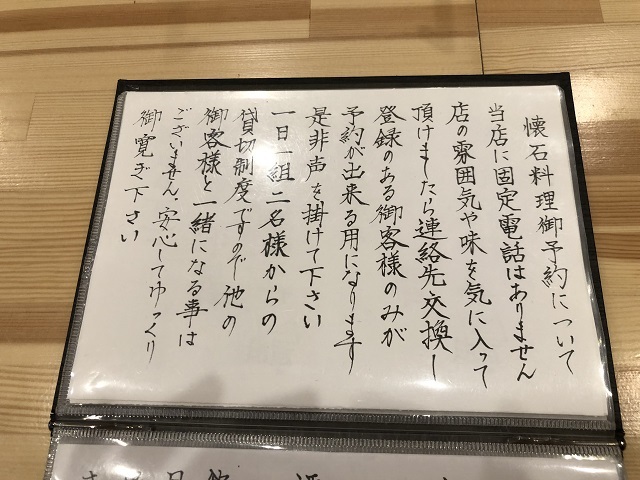 懐石料理御予約について
当店に固定電話はありません
店の雰囲気や味を気に入って
頂けましたら連絡先交換し
登録のある御客様のみが
予約が出来る用になります
是非声を掛けて下さい
一日一組二名様からの
貸切制度ですので他の
御客様と一緒になる事は
ございません。安心してゆっくり
御寛ぎ下さい